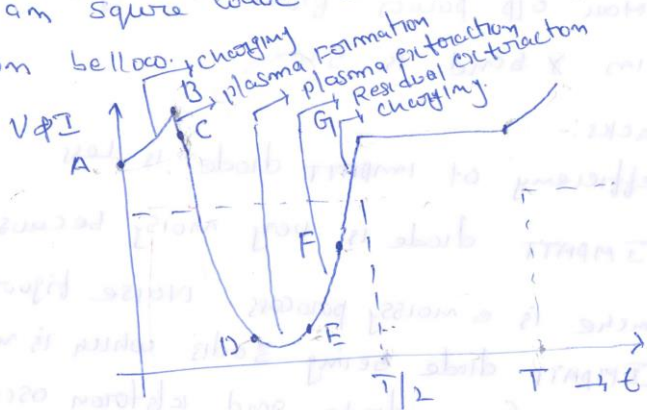 am square
m belloco.
charging
plasma Formation
plasma extoraction
Residual extoraction
charging.
V&I
A
B
C
G
F
D
E
T/2
T → t